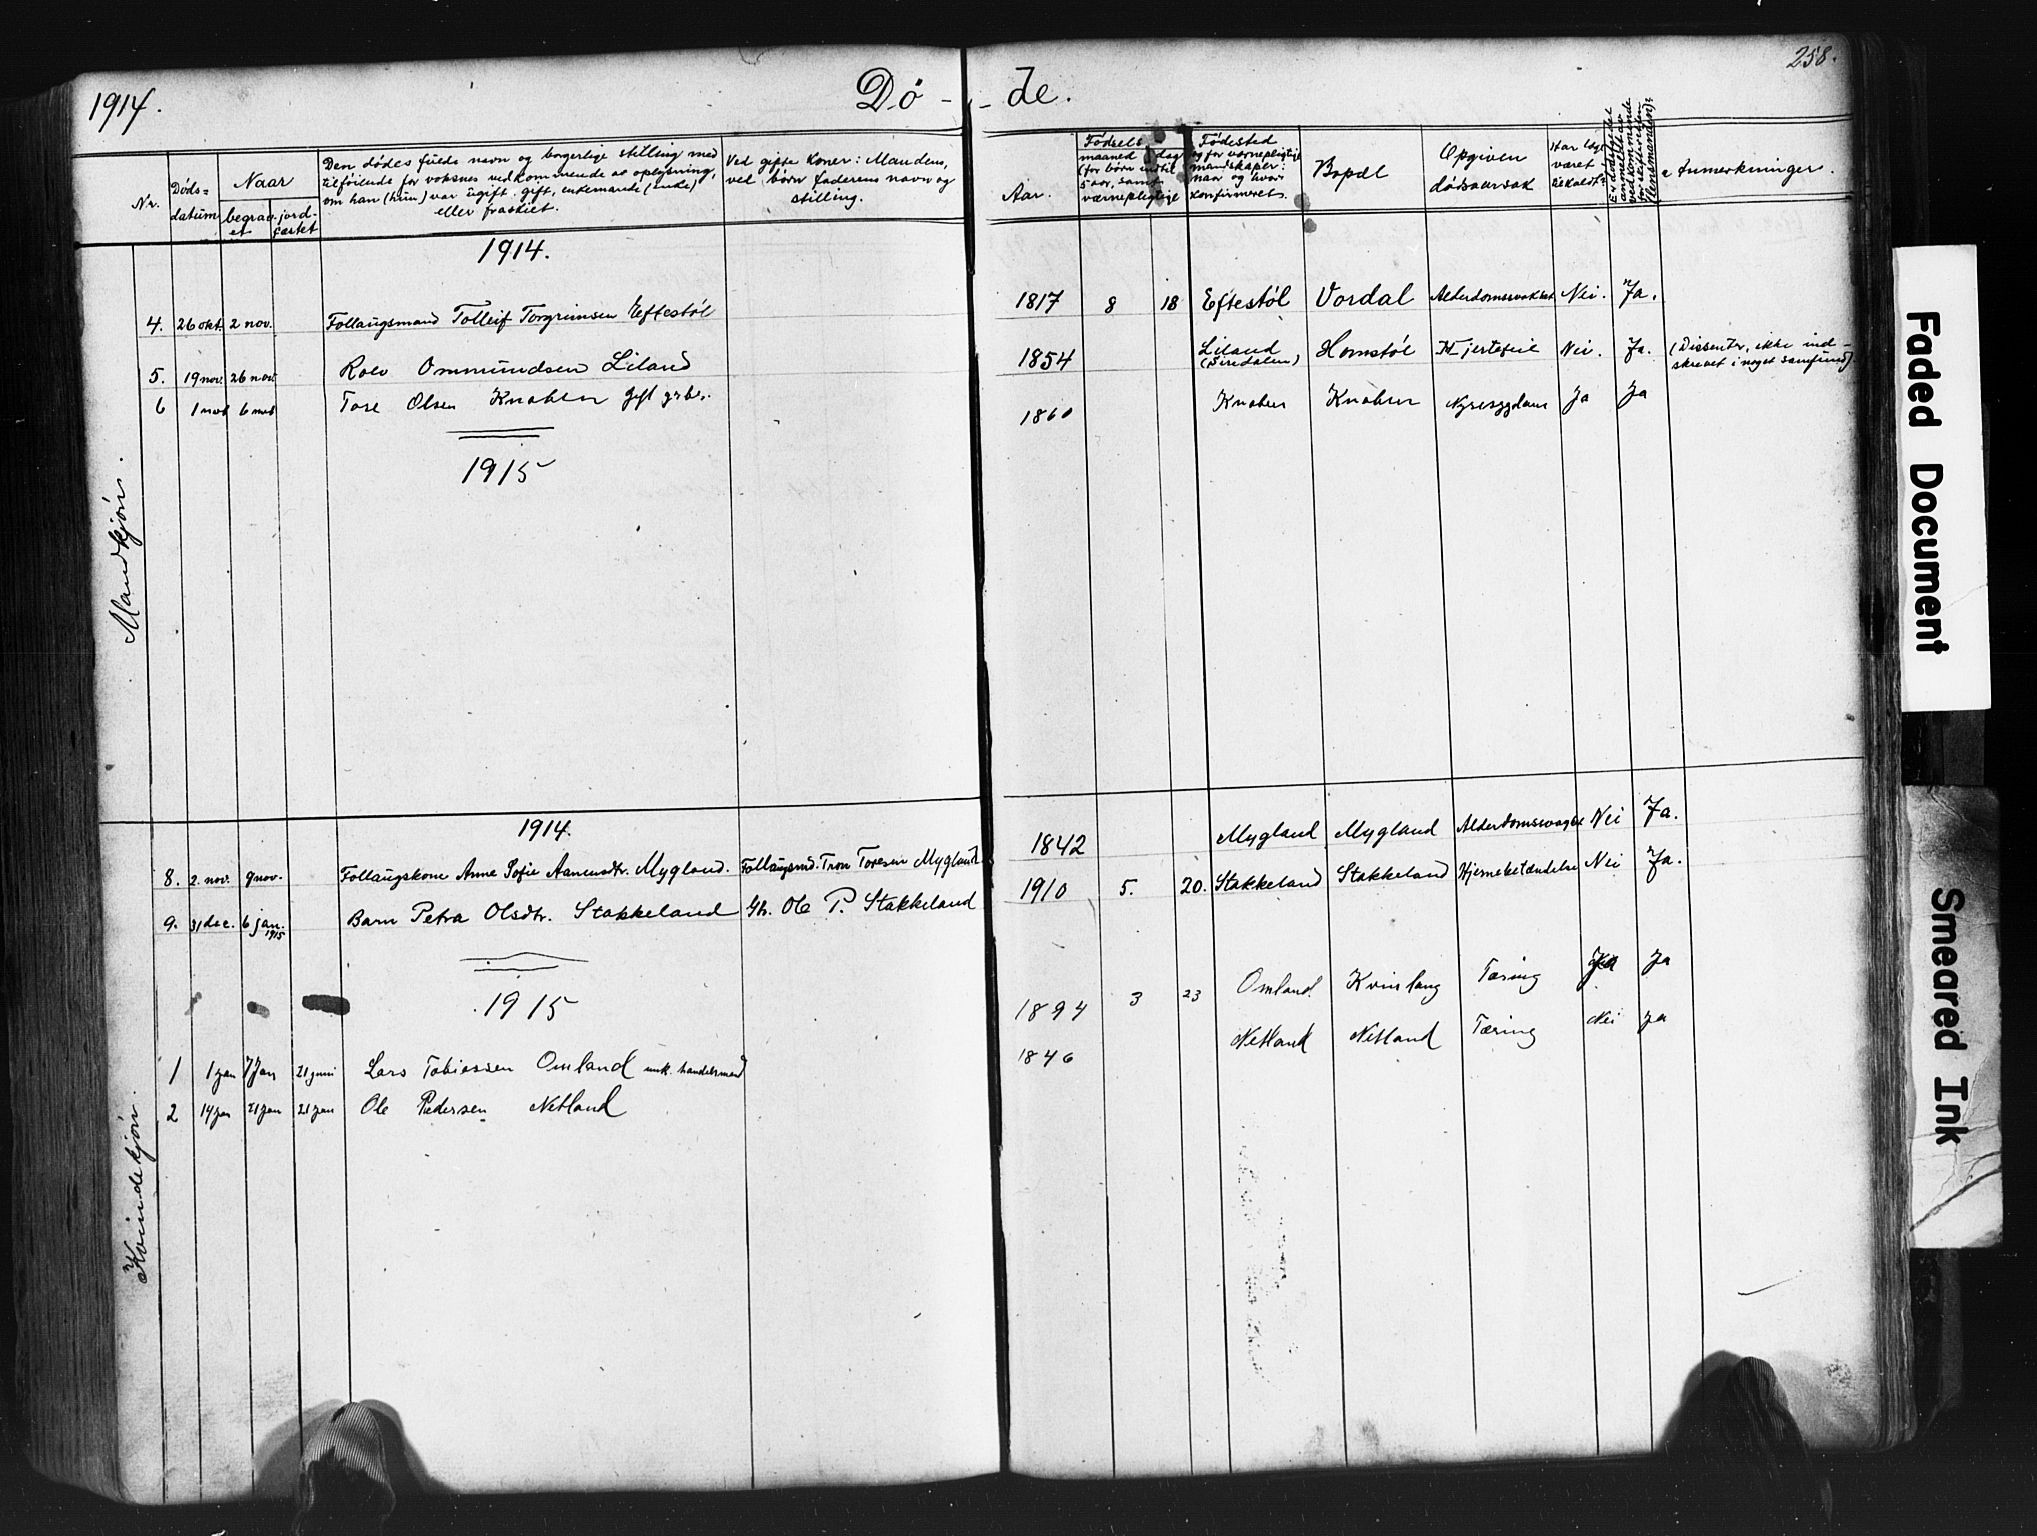 1914.
Dø - - de.
258.
Nr.
Døds=
datum
Naar
begrav-
et
jord-
fæstet
Den dødes fulde navn og borgerlige stilling med
tilföiende for voksnes vedkommende av oplysning,
om han (hun) var ugift, gift, enkemand (enke)
eller fraskilt.
Ved gifte koner: Mandens,
ved børn faderens navn og
stilling.
Aar.
Fødsels
maaned
dag
(for børn indtil
5 aar, samt
værnepligtige
Fødested
og for værnepligtige
mandskaper:
naar og hvor
konfirmeret.
Bopæl
Opgiven
dødsaarsak
Har læge
været
tilkaldt?
Er dødsfaldet
anmeldt av
vedkommende
for skifteretten
(lensmanden)?
Anmerkninger.
Mandkjön.
1914.
4. 26 okt. 2 nov. Follaugsmand Tolleif Torgrimsen Eftestöl 1817 8 18 Eftestöl Vordal Alderdomssvakhet Nei. Ja.
5. 19 nov. 26 nov. Rolv Ommundsen Liland 1854 Liland Homstöl Hjertefeil Nei. Ja. (Dissenter, ikke ind-
(Sirdalen) skrevet i noget samfund)
6 1 nov 6 nov Tore Olsen Knaben gift grbr. 1860 Knaben Knaben Nyresygdom Ja Ja
1915
Kvindekjön.
1914.
8. 2. nov. 9 nov. Follaugskone Anne Sofie Aanensdtr. Mygland. Follaugsmd. Tron Toresen Mygland 1842 Mygland Mygland Alderdomssvaghet Nei Ja.
9. 31 dec. 6 jan. Barn Petra Olsdtr. Stakkeland Gb. Ole P. Stakkeland 1910 5. 20. Stakkeland Stakkeland Hjernebetændelse Nei Ja.
1915
1915
1 1 jan 7 Jan 21 juni Lars Tobiassen Omland unk. handelsmand 1894 3 23 Omland. Kvinlaug Tæring Ja Ja
2 14 jan 21 jan 21 jan Ole Pedersen Netland 1846 Netland Netland Tæring Nei Ja
Faded Document
Smeared Ink